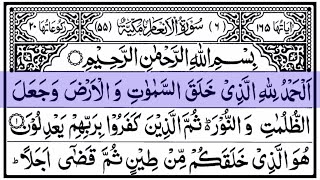 اٰيَاتُهَا ١٦٥ (٦) سُوْرَةُ الْاَنْعَامِ مَكِّيَّةٌ (٥٥) رُكُوْعَاتُهَا ٢٠
بِسْمِ اللّٰهِ الرَّحْمٰنِ الرَّحِيْمِ
اَلْحَمْدُ لِلّٰهِ الَّذِيْ خَلَقَ السَّمٰوٰتِ وَ الْاَرْضَ وَ جَعَلَ
الظُّلُمٰتِ وَ النُّوْرَ ؕ ثُمَّ الَّذِيْنَ كَفَرُوْا بِرَبِّهِمْ يَعْدِلُوْنَ ۝۱
هُوَ الَّذِيْ خَلَقَكُمْ مِّنْ طِيْنٍ ثُمَّ قَضٰۤى اَجَلًا ؕ